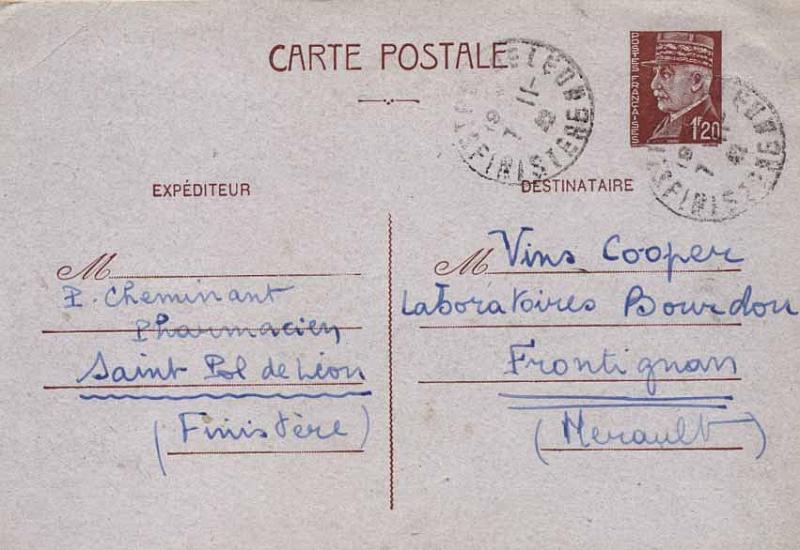 CARTE POSTALE
POSTES FRANÇAISES
1F20
FINISTERE
EXPÉDITEUR
M
P. Cheminant
Pharmacien
Saint Pol de Léon
(Finistère)
DESTINATAIRE
M Vins Cooper
Laboratoires Bourdou
Frontignan
(Herault)
FINISTERE